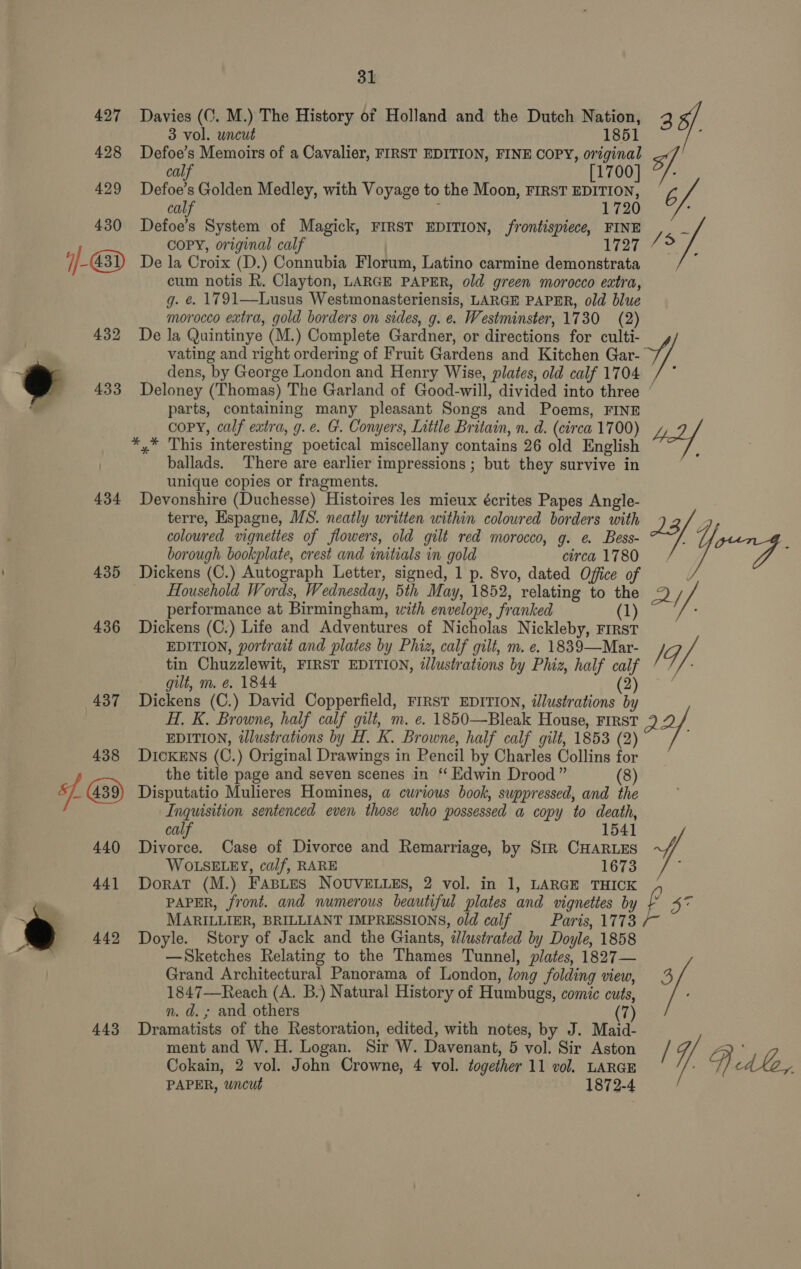 31
427 Davies (C. M.) The History of Holland and the Dutch Nation, 35/-
3 vol. uncut 1851
428 Defoe's Memoirs of a Cavalier, FIRST EDITION, FINE COPY, original
calf [1700] 5/-
429 Defoe's Golden Medley, with Voyage to the Moon, FIRST EDITION,
calf 1720 6/-
430 Defoe's System of Magick, FIRST EDITION, frontispiece, FINE
COPY, original calf 1727 15/-
431 De la Croix (D.) Connubia Florum, Latino carmine demonstrata
cum notis R. Clayton, LARGE PAPER, old green morocco extra,
g. e. 1791—Lusus Westmonasteriensis, LARGE PAPER, old blue
morocco extra, gold borders on sides, g. e. Westminster, 1730 (2)
432 De la Quintinye (M.) Complete Gardner, or directions for culti-
vating and right ordering of Fruit Gardens and Kitchen Gar-
dens, by George London and Henry Wise, plates, old calf 1704
433 Deloney (Thomas) The Garland of Good-will, divided into three
parts, containing many pleasant Songs and Poems, FINE
COPY, calf extra, g. e. G. Conyers, Little Britain, n. d. (circa 1700)
*⁎* This interesting poetical miscellany contains 26 old English 42/-
ballads. There are earlier impressions; but they survive in
unique copies or fragments.
434 Devonshire (Duchesse) Histoires les mieux écrites Papes Angle-
terre, Espagne, MS. neatly written within coloured borders with
coloured vignettes of flowers, old gilt red morocco, g. e. Bess- 23/- Young.
borough bookplate, crest and initials in gold circa 1780
435 Dickens (C.) Autograph Letter, signed, 1 p. 8vo, dated Office of
Household Words, Wednesday, 5th May, 1852, relating to the 21/-
performance at Birmingham, with envelope, franked (1)
436 Dickens (C.) Life and Adventures of Nicholas Nickleby, FIRST
EDITION, portrait and plates by Phiz, calf gilt, m. e. 1839—Mar-
tin Chuzzlewit, FIRST EDITION, illustrations by Phiz, half calf 19/-
gilt, m. e. 1844 (2)
437 Dickens (C.) David Copperfield, FIRST EDITION, illustrations by
H. K. Browne, half calf gilt, m. e. 1850—Bleak House, FIRST 22/-
EDITION, illustrations by H. K. Browne, half calf gilt, 1853 (2)
438 DICKENS (C.) Original Drawings in Pencil by Charles Collins for
the title page and seven scenes in “Edwin Drood” (8)
439 Disputatio Mulieres Homines, a curious book, suppressed, and the
Inquisition sentenced even those who possessed a copy to death,
calf 1541
440 Divorce. Case of Divorce and Remarriage, by SIR CHARLES
WOLSELEY, calf, RARE 1673
441 DORAT (M.) FABLES NOUVELLES, 2 vol. in 1, LARGE THICK
PAPER, front. and numerous beautiful plates and vignettes by
MARILLIER, BRILLIANT IMPRESSIONS, old calf Paris, 1773
442 Doyle. Story of Jack and the Giants, illustrated by Doyle, 1858
—Sketches Relating to the Thames Tunnel, plates, 1827—
Grand Architectural Panorama of London, long folding view, 3/-
1847—Reach (A. B.) Natural History of Humbugs, comic cuts,
n. d.; and others (7)
443 Dramatists of the Restoration, edited, with notes, by J. Maid-
ment and W. H. Logan. Sir W. Davenant, 5 vol. Sir Aston
Cokain, 2 vol. John Crowne, 4 vol. together 11 vol. LARGE
PAPER, uncut 1872-4